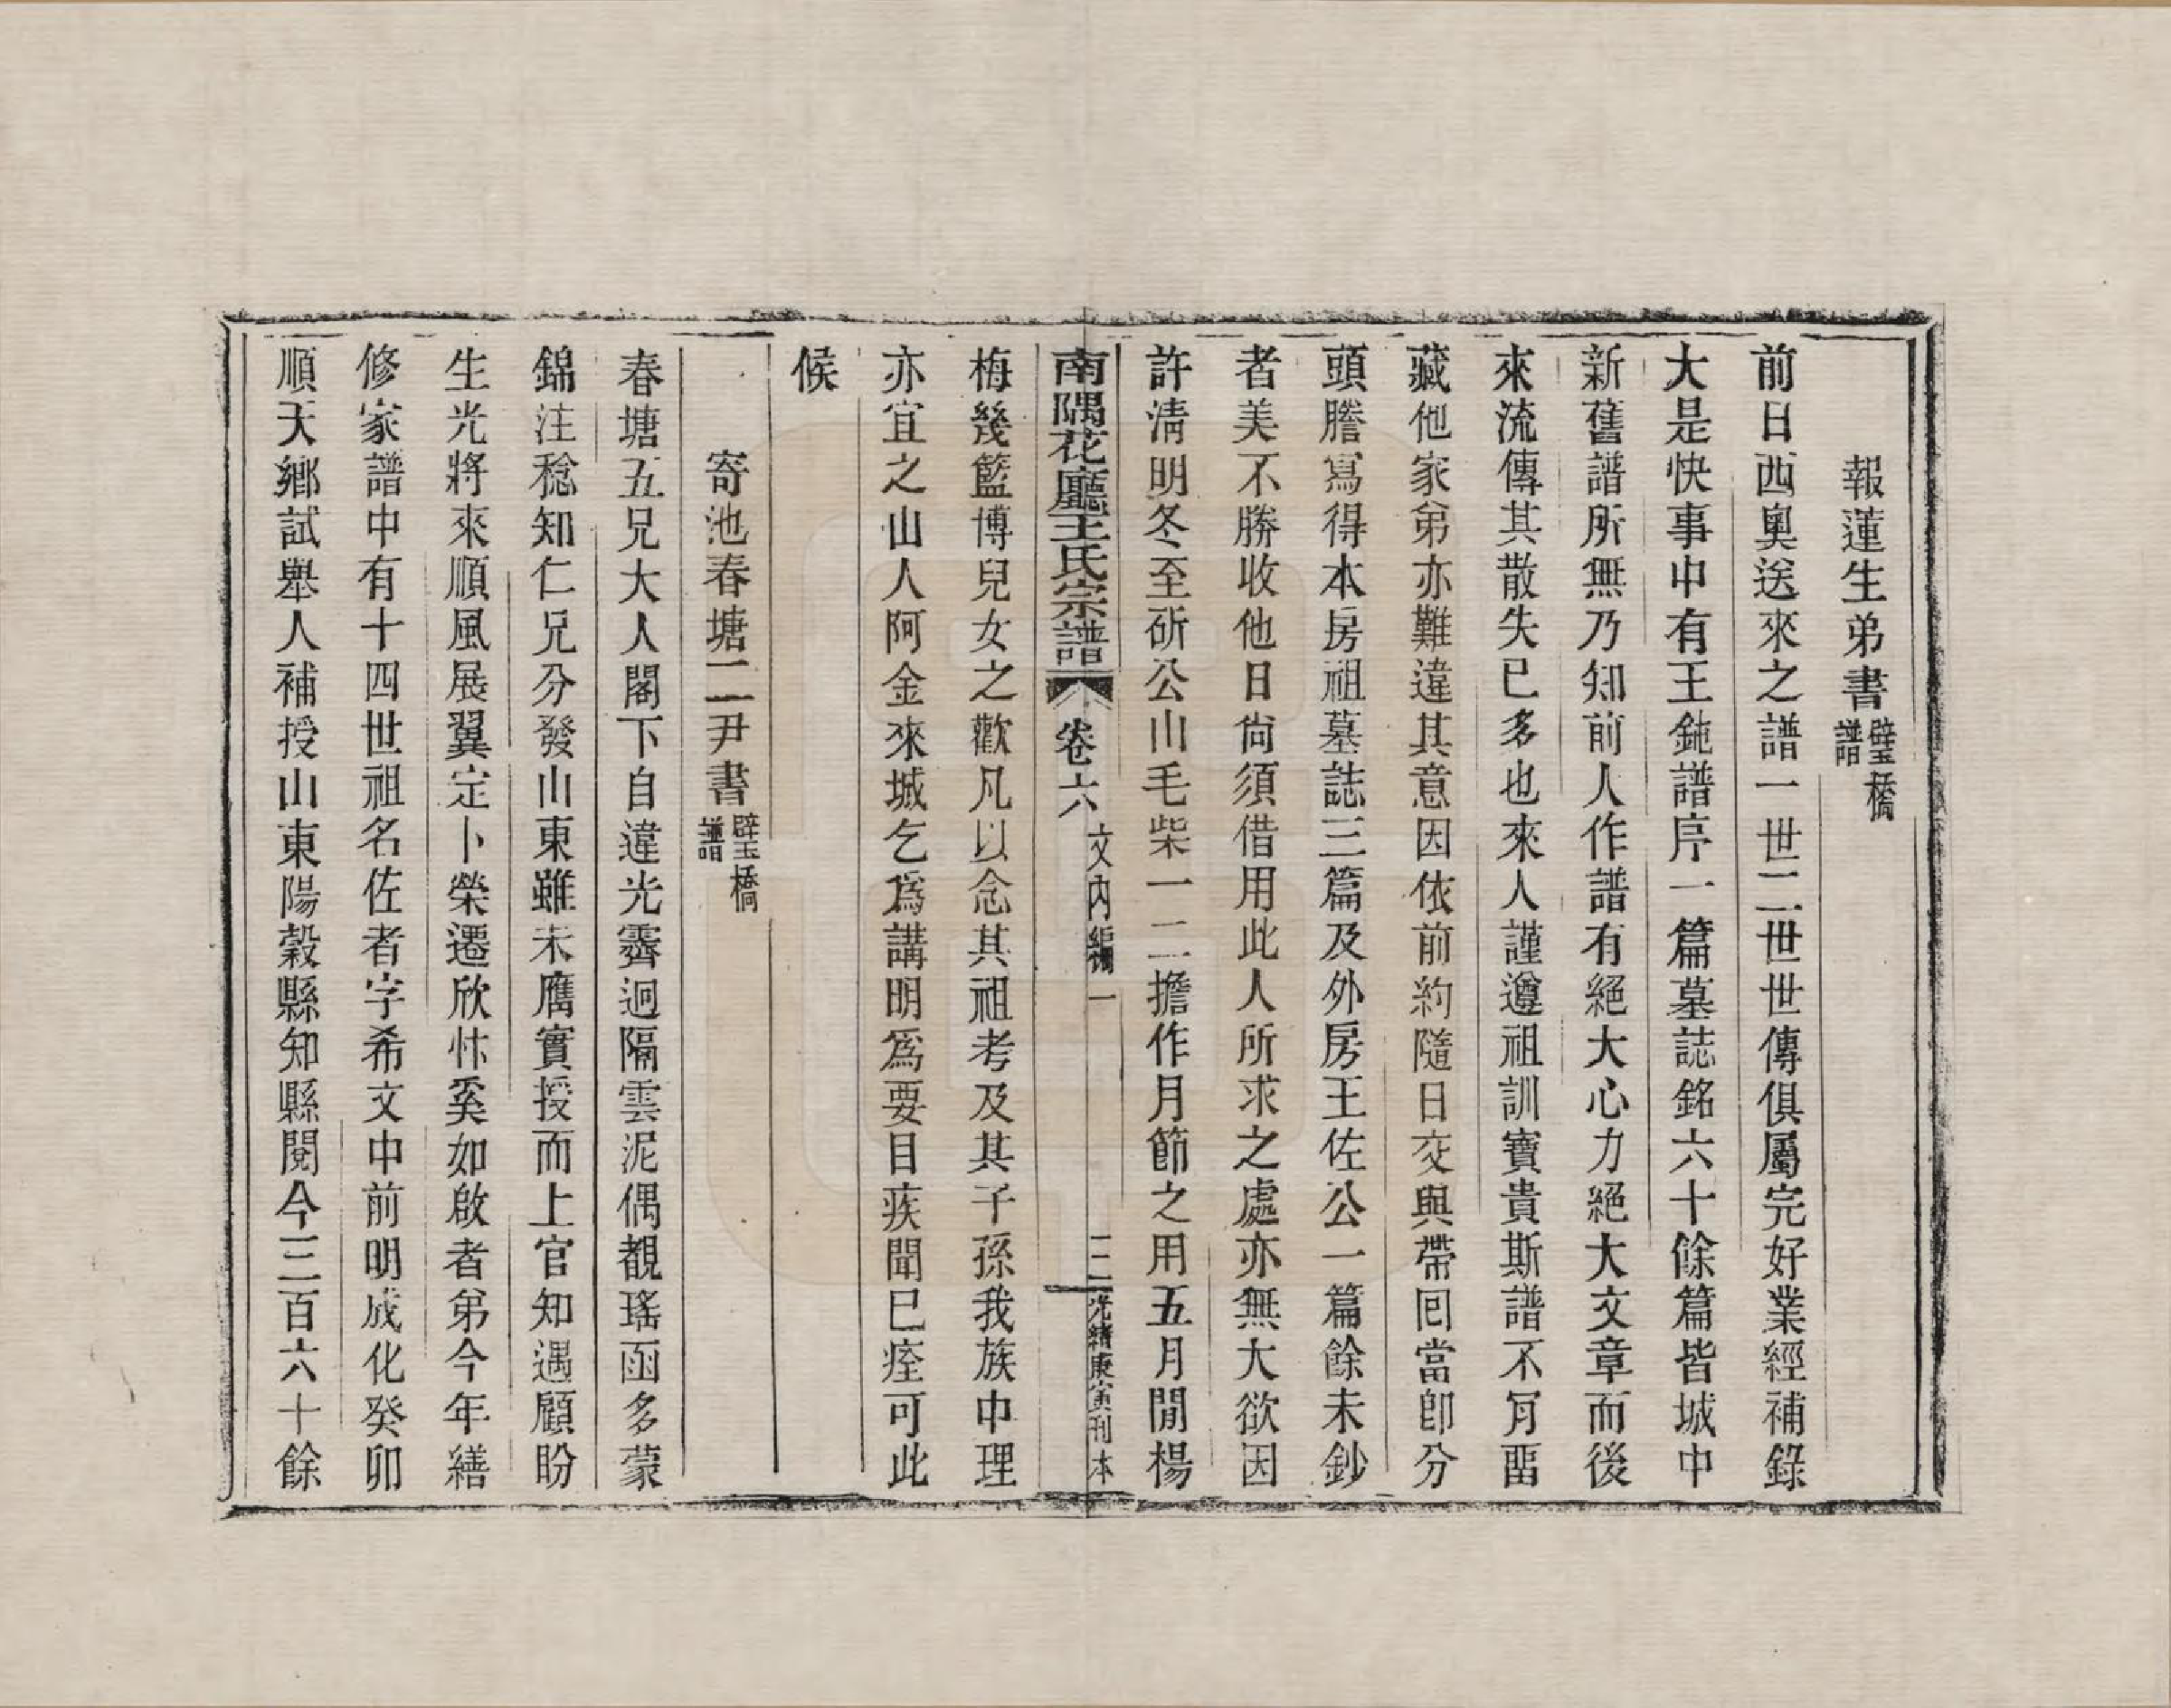 報蓮生弟書 璧玉橋譜
前日西奧送來之譜一世二世世傳俱屬完好業經補錄
大是快事中有王鉇譜序一篇墓誌銘六十餘篇皆城中
新舊譜所無乃知前人作譜有絕大心力絕大文章而後
來流傳其散失已多也來人謹遵祖訓寶貴斯譜不肎畱
藏他家弟亦難違其意因依前約隨日交與帶囘當卽分
頭謄寫得本房祖墓誌三篇及外房王佐公一篇餘未鈔
者美不勝收他日尙須借用此人所求之處亦無大欲因
許淸明冬至斫公山毛柴一二擔作月節之用五月閒楊
南隅花廳王氏宗譜 卷六 文內編一 二 光緖庚寅刊本
梅幾籃博兒女之歡凡以念其祖考及其子孫我族中理
亦宜之山人阿金來城乞爲講明爲要目疾聞已痊可此
候
寄池春塘二尹書 璧玉橋譜
春塘五兄大人閣下自違光霽迥隔雲泥偶覩瑤函多蒙
錦注稔知仁兄分發山東雖未膺實授而上官知遇顧盼
生光將來順風展翼定卜榮遷欣忭奚如啟者弟今年繕
修家譜中有十四世祖名佐者字希文中前明成化癸卯
順天鄉試舉人補授山東陽穀縣知縣閱今三百六十餘